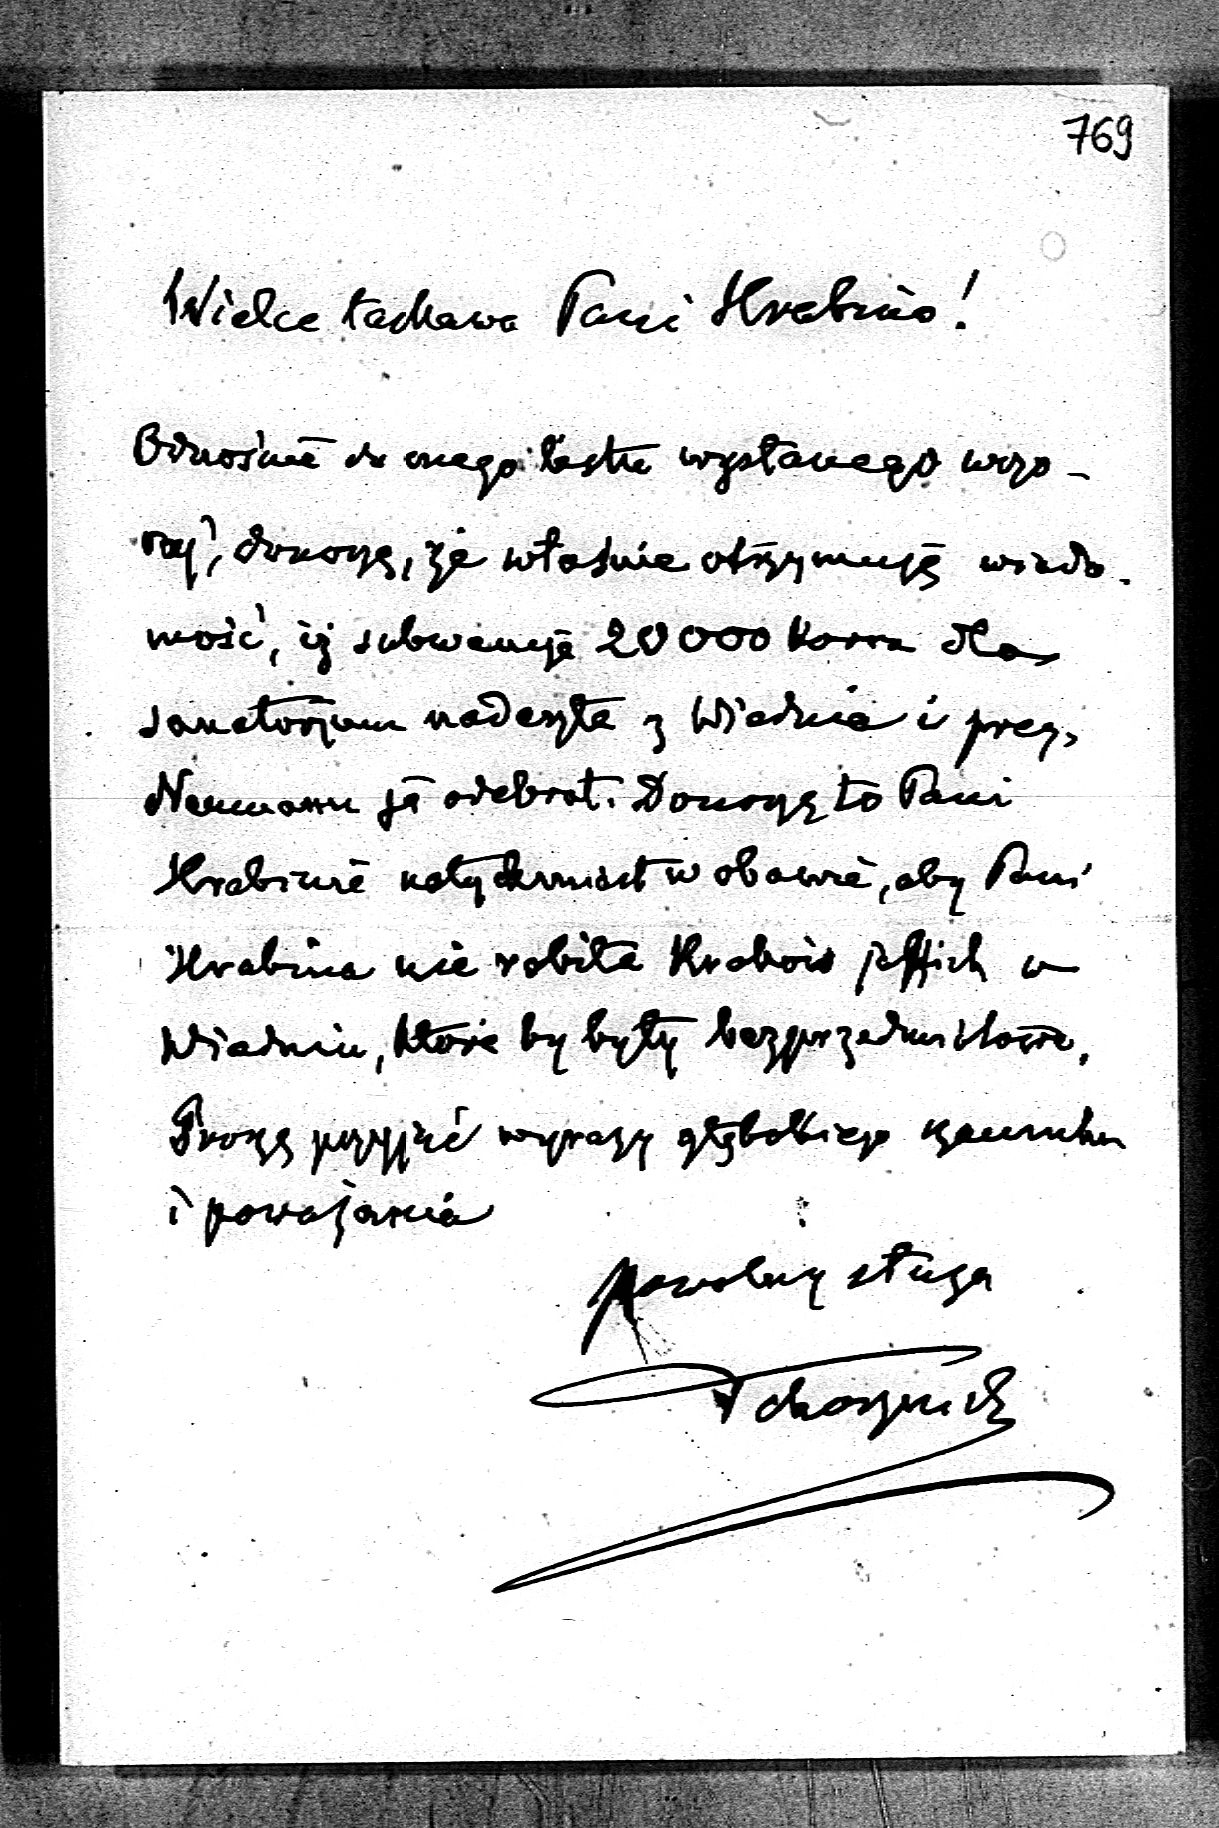 769
Wielce łaskawa Pani Hrabino!
Odnośnie do mego listu wysłanego wczo-
raj, donoszę, że właśnie otrzymuję wiado-
mość, iż subwencja 20000 koron dla
sanatorjum nadeszła z Wiednia i prez.
Neumann ją odebrał. Donoszę to Pani
Hrabinie natychmiast w obawie, aby Pani
Hrabina nie robiła kroków jakich w
Wiedniu, które by były bezprzedmiotowe.
Proszę przyjąć wyrazy głębokiego szacunku
i poważania
powolny sługa
Tchorznicki